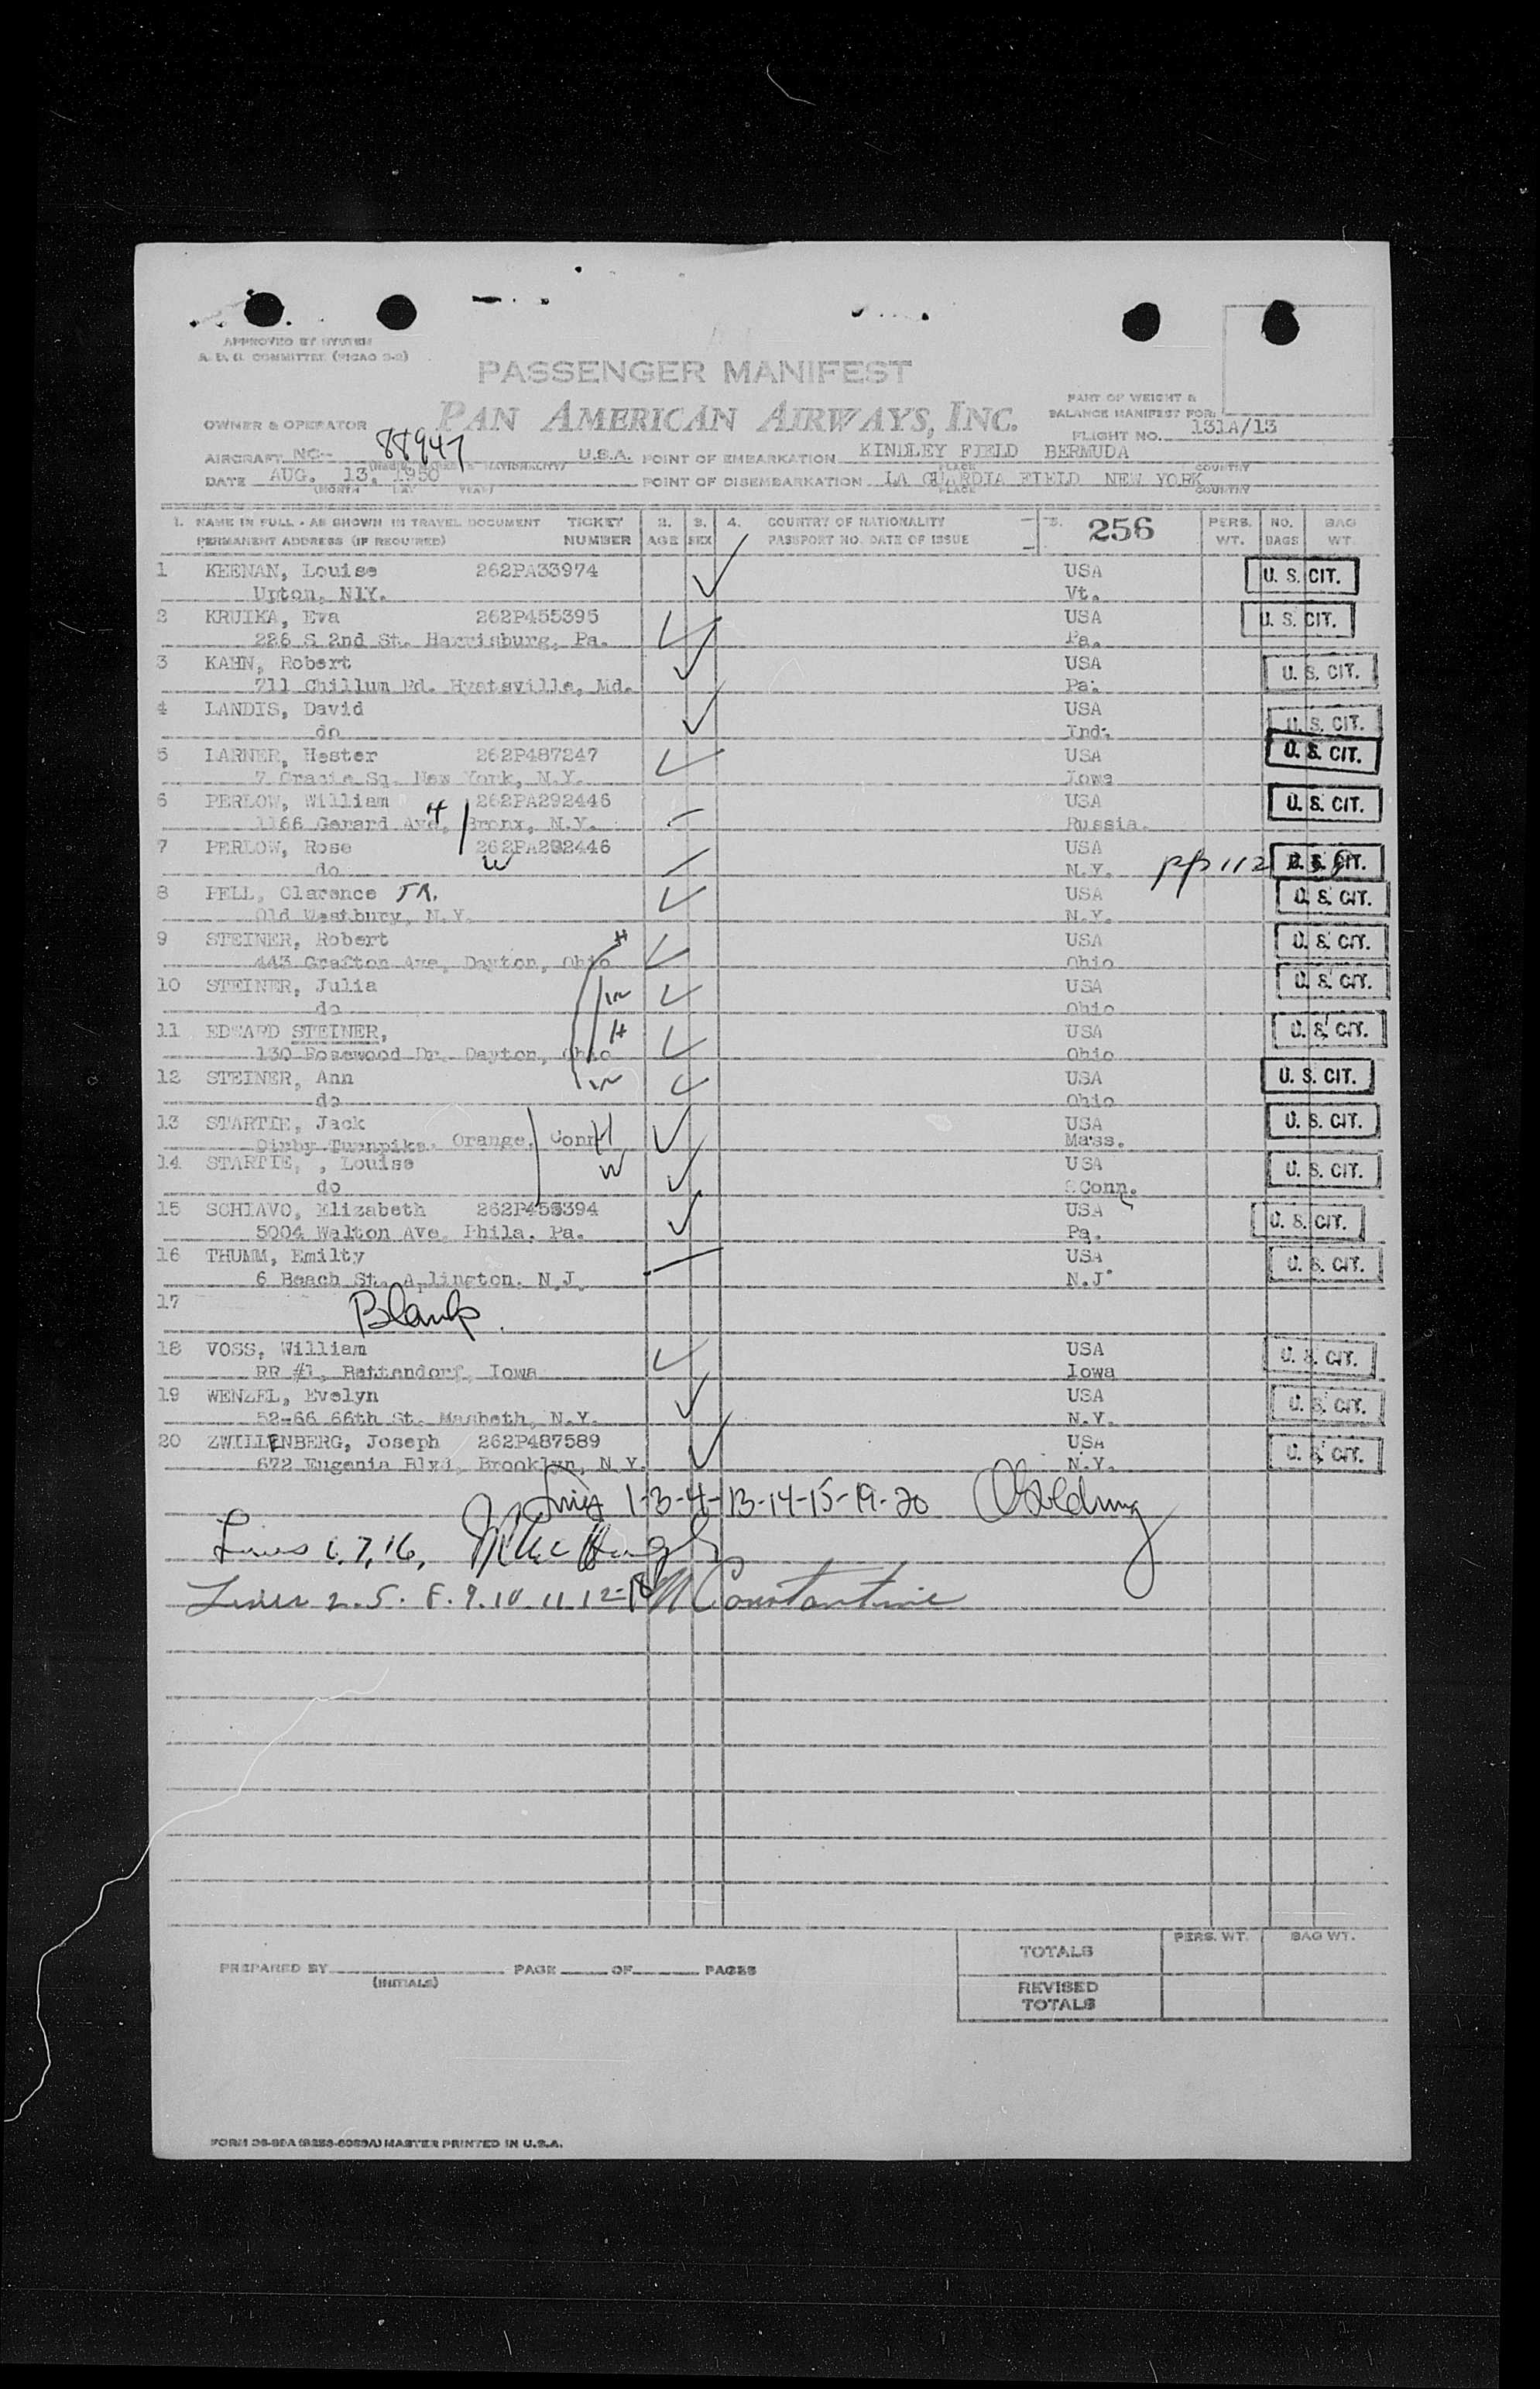 APPROVED BY SYSTEM
A. D. G. COMMITTEE (PICAO 2-2)
PASSENGER MANIFEST
PART OF WEIGHT &
BALANCE MANIFEST FOR:
OWNER & OPERATOR PAN AMERICAN AIRWAYS, INC.
FLIGHT NO. 131A/13
AIRCRAFT NC- 88947 U.S.A. POINT OF EMBARKATION KINDLEY FIELD BERMUDA
PLACE COUNTRY
DATE AUG. 13, 1950 POINT OF DISEMBARKATION LA GUARDIA FIELD NEW YORK
(MONTH DAY YEAR) PLACE COUNTRY
1. NAME IN FULL - AS SHOWN IN TRAVEL DOCUMENT TICKET 2. 3. 4. COUNTRY OF NATIONALITY 5. 256 PERS. NO. BAG
PERMANENT ADDRESS (IF REQUIRED) NUMBER AGE SEX PASSPORT NO. DATE OF ISSUE WT. BAGS WT.
1 KEENAN, Louise 262PA33974 USA U. S. CIT.
Upton, NIY. Vt.
2 KRUIKA, Eva 262P455395 USA U. S. CIT.
226 S 2nd St. Harrisburg, Pa. Pa.
3 KAHN, Robert USA U. S. CIT.
711 Chillum Rd. Hyatsville, Md. Pa.
4 LANDIS, David USA U. S. CIT.
do Ind.
5 LARNER, Hester 262P487247 USA U. S. CIT.
7 Gracie Sq. New York, N.Y. Iowa
6 PERLOW, William 262PA292446 USA U. S. CIT.
1166 Gerard Ave, Bronx, N.Y. H Russia.
7 PERLOW, Rose 262PA292446 USA U. S. CIT.
do W N.Y. pp 112
8 PELL, Clarence JR. USA U. S. CIT.
Old Westbury, N.Y. N.Y.
9 STEINER, Robert H USA U. S. CIT.
443 Grafton Ave, Dayton, Ohio Ohio
10 STEINER, Julia W USA U. S. CIT.
do Ohio
11 EDWARD STEINER, H USA U. S. CIT.
130 Rosewood Dr. Dayton, Ohio Ohio
12 STEINER, Ann W USA U. S. CIT.
do Ohio
13 STARTIE, Jack USA U. S. CIT.
Turnpike. Orange, Conn H Mass.
14 STARTIE, , Louise W USA U. S. CIT.
do Conn.
15 SCHIAVO, Elizabeth 262P455394 USA U. S. CIT.
5004 Walton Ave. Phila. Pa. Pa.
16 THUMM, Emilty USA U. S. CIT.
6 Beach St. Arlington. N.J. N.J.
17 Blank.
18 VOSS, William USA U. S. CIT.
RR #1, Bettendorf, Iowa Iowa
19 WENZEL, Evelyn USA U. S. CIT.
52-66 66th St. Masbeth, N.Y. N.Y.
20 ZWILLENBERG, Joseph 262P487589 USA U. S. CIT.
672 Eugenia Blvd, Brooklyn, N.Y. N.Y.
Lines 1-3-4-13-14-15-19-20
Lines 6, 7, 16,
Lines 2. 5. 8. 9. 10 11 12-18 M Constantine
PERS. WT. BAG WT.
TOTALS
PREPARED BY PAGE OF PAGES
(INITIALS)
REVISED
TOTALS
MASTER PRINTED IN U.S.A.